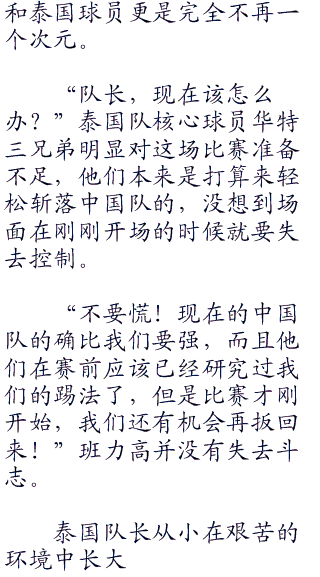 和泰国球员更是完全不再一
个次元。
“队长，现在该怎么
办？”泰国队核心球员华特
三兄弟明显对这场比赛准备
不足，他们本来是打算来轻
松斩落中国队的，没想到场
面在刚刚开场的时候就要失
去控制。
“不要慌！现在的中国
队的确比我们要强，而且他
们在赛前应该已经研究过我
们的踢法了，但是比赛才刚
开始，我们还有机会再扳回
来！”班力高并没有失去斗
志。
泰国队长从小在艰苦的
环境中长大